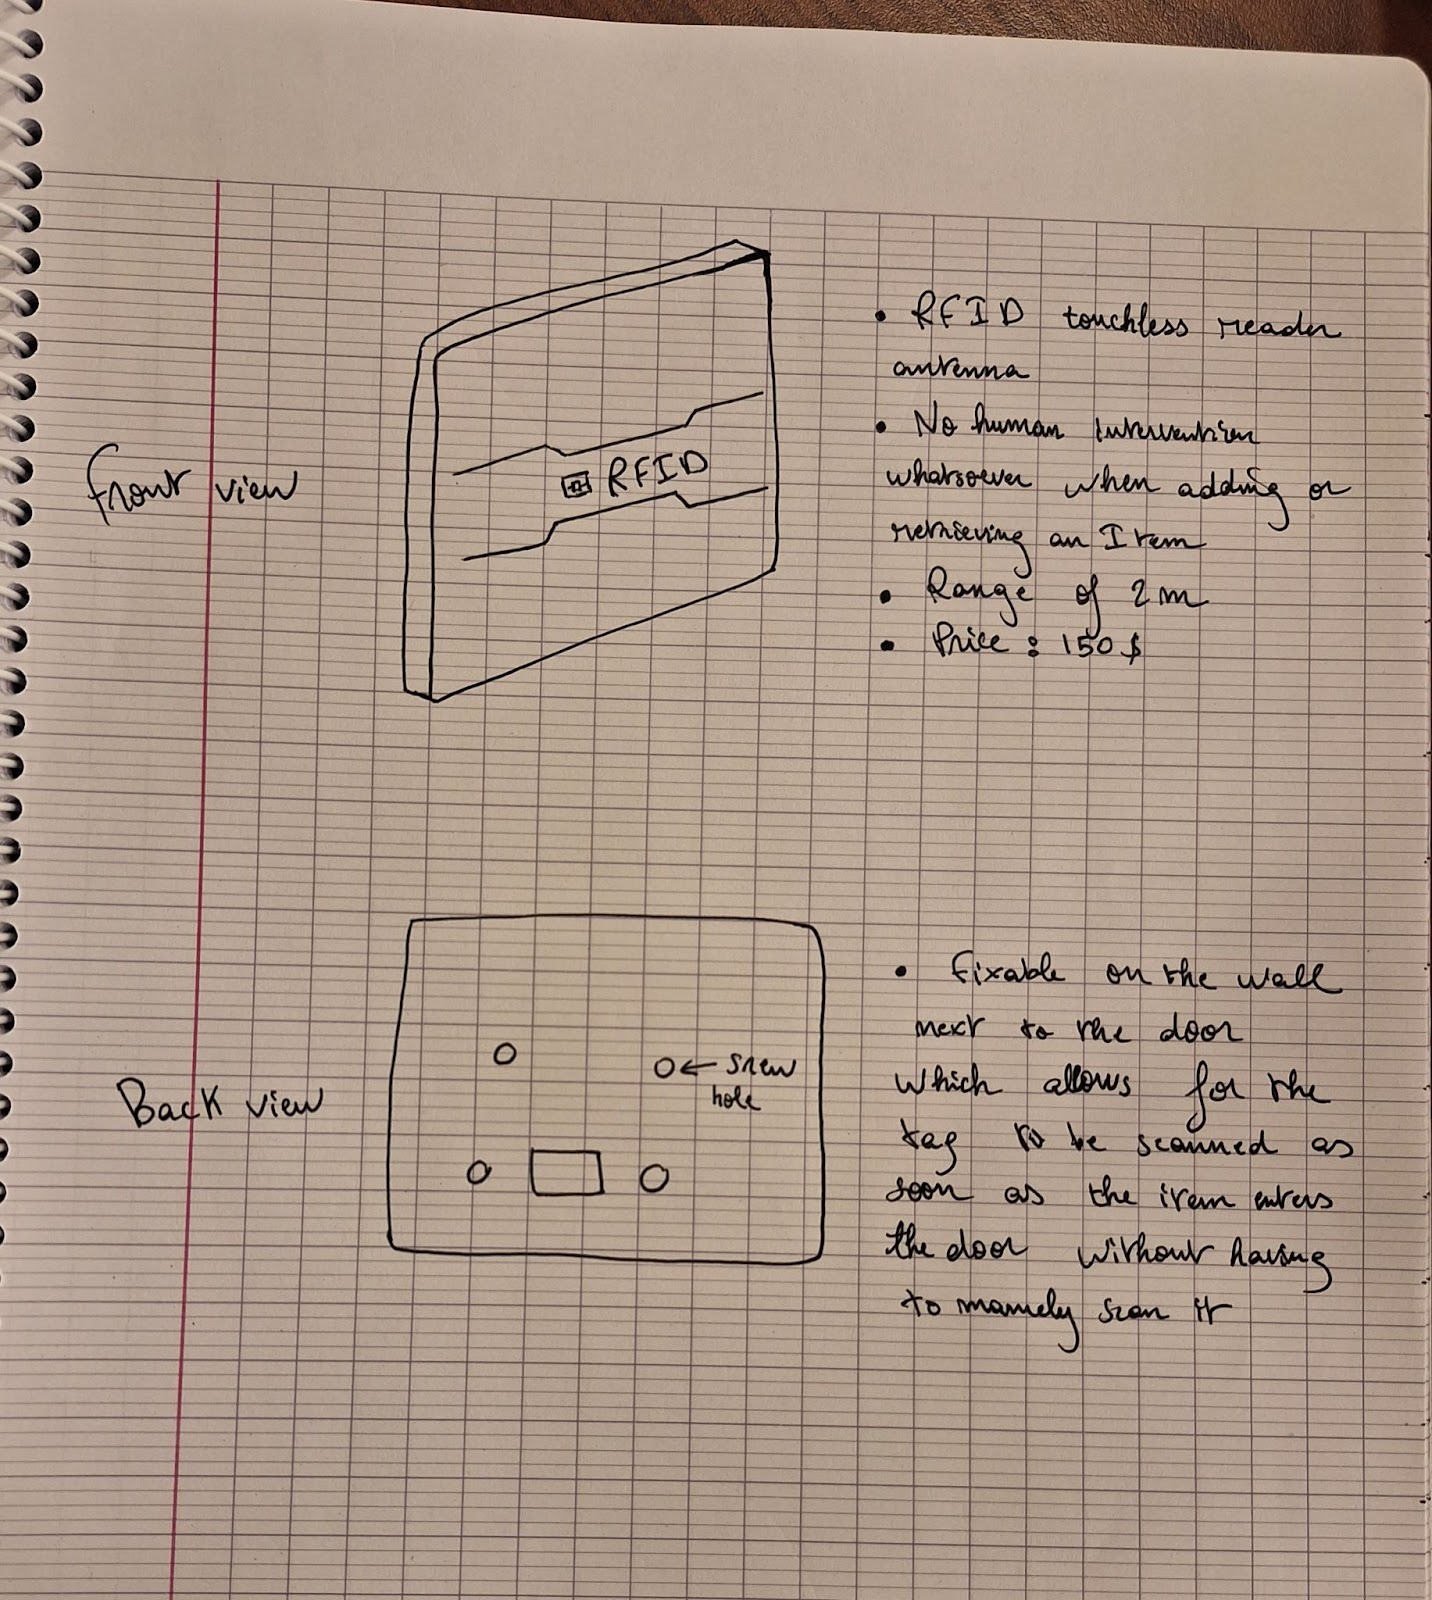 Front view
RFID
• RFID touchless reader
antenna
• No human intervention
whatsoever when adding or
retrieving an Item
• Range of 2m
• Price : 150$
Back view
screw
hole
• Fixable on the wall
next to the door
which allows for the
tag to be scanned as
soon as the item enters
the door without having
to scan it